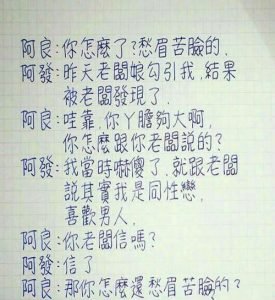 阿良:你怎麼了?愁眉苦臉的.
阿發:昨天老闆娘勾引我.結果
被老闆發現了.
阿良:哇靠,你丫膽夠大啊,
你怎麼跟你老闆說的?
阿發:我當時嚇傻了.就跟老闆
說其實我是同性戀,
喜歡男人.
阿良:你老闆信嗎?
阿發:信了
阿良:那你怎麼還愁眉苦臉的?